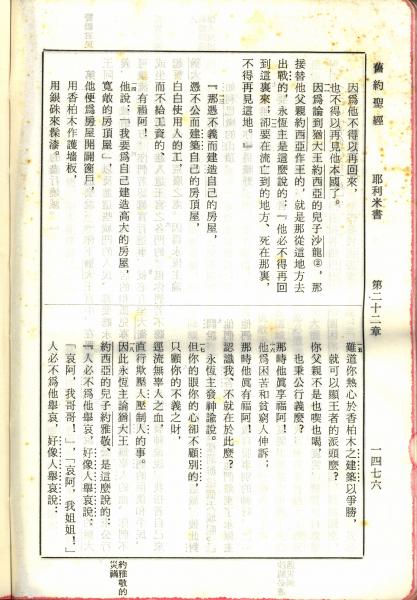 舊約聖經　耶利米書　第二十二章　一四七六
因爲他不得以再回來，
也不得以再見他本國了。
因爲論到猶大王約西亞的兒子沙龍②，那
接替他父親約西亞作王的，就是那從這地方去
出戰的，永恆主是這麼說的：『他必不得再回
到這裏來；卻要在流亡到的地方、死在那裏，
不得再見這地。』
『那憑不義而建造自己的房屋，
憑不公而建築自己的房頂屋，
白白使用人的工，
而不給工資的，
有禍阿！
他說：「我要爲自己建造高大的房屋，
寬敞的房頂屋」；
他便爲房屋開闢窗戶，
用香柏木作護墻板，
用銀硃來搽漆。
難道你熱心於香柏木之建築以爭勝，
就可以顯王者的派頭麼？
你父親不是也喫也喝，
也秉公行義麼？
那時他眞享福阿！
他爲困苦和貧窮人伸訴；
那時他眞有福阿！
認識我、不就在於此麼？
永恆主發神諭說。
但你的眼你的心卻不顧別的，
只顧你的不義之財，
逕流無辜人之血，
直行欺壓人壓制人的事。
因此永恆主論猶大王
約西亞的兒子約雅敬、是這麼說的：
『人必不爲他舉哀，好像人舉哀說：
「哀阿，我哥哥！」，「哀阿，我姐姐！」
人必不爲他舉哀，好像人舉哀說：
約雅敬的
災禍